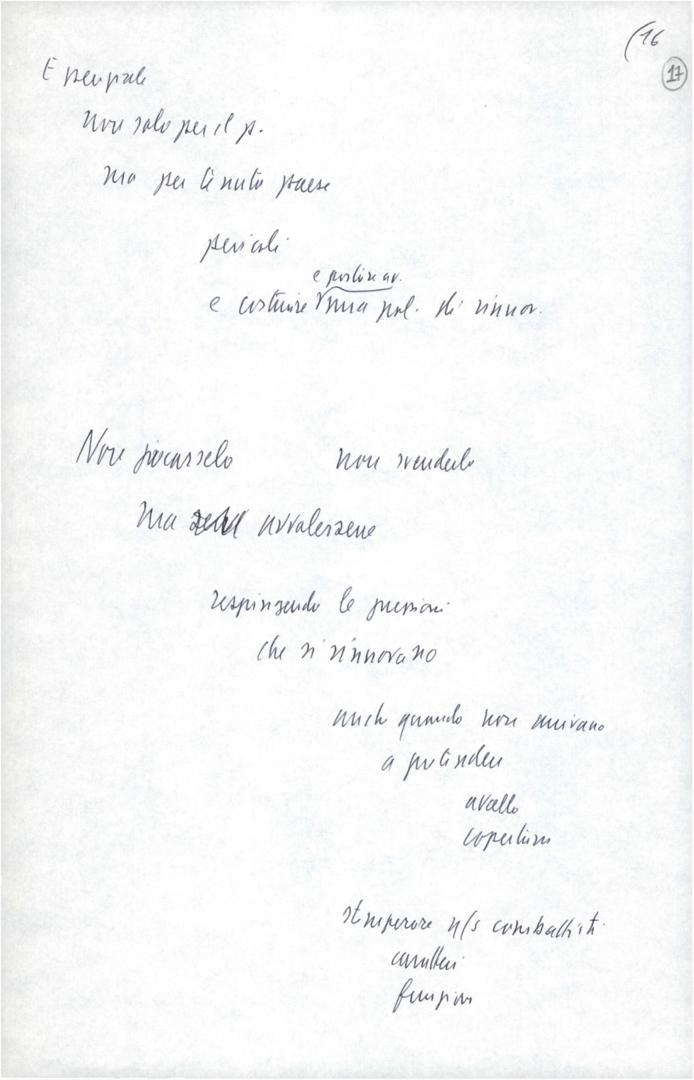 (16
17
E
non solo per il p.
ma per l'intero paese
pericoli
e costruire una pol. di rinnov.
Non giocarselo non svenderlo
ma avvalersene
respingendo le pressioni
che si rinnovano
anche quando non arrivano
a pretendere
avallo
copertura
stemperare n/s combattività
caratteri
funzioni